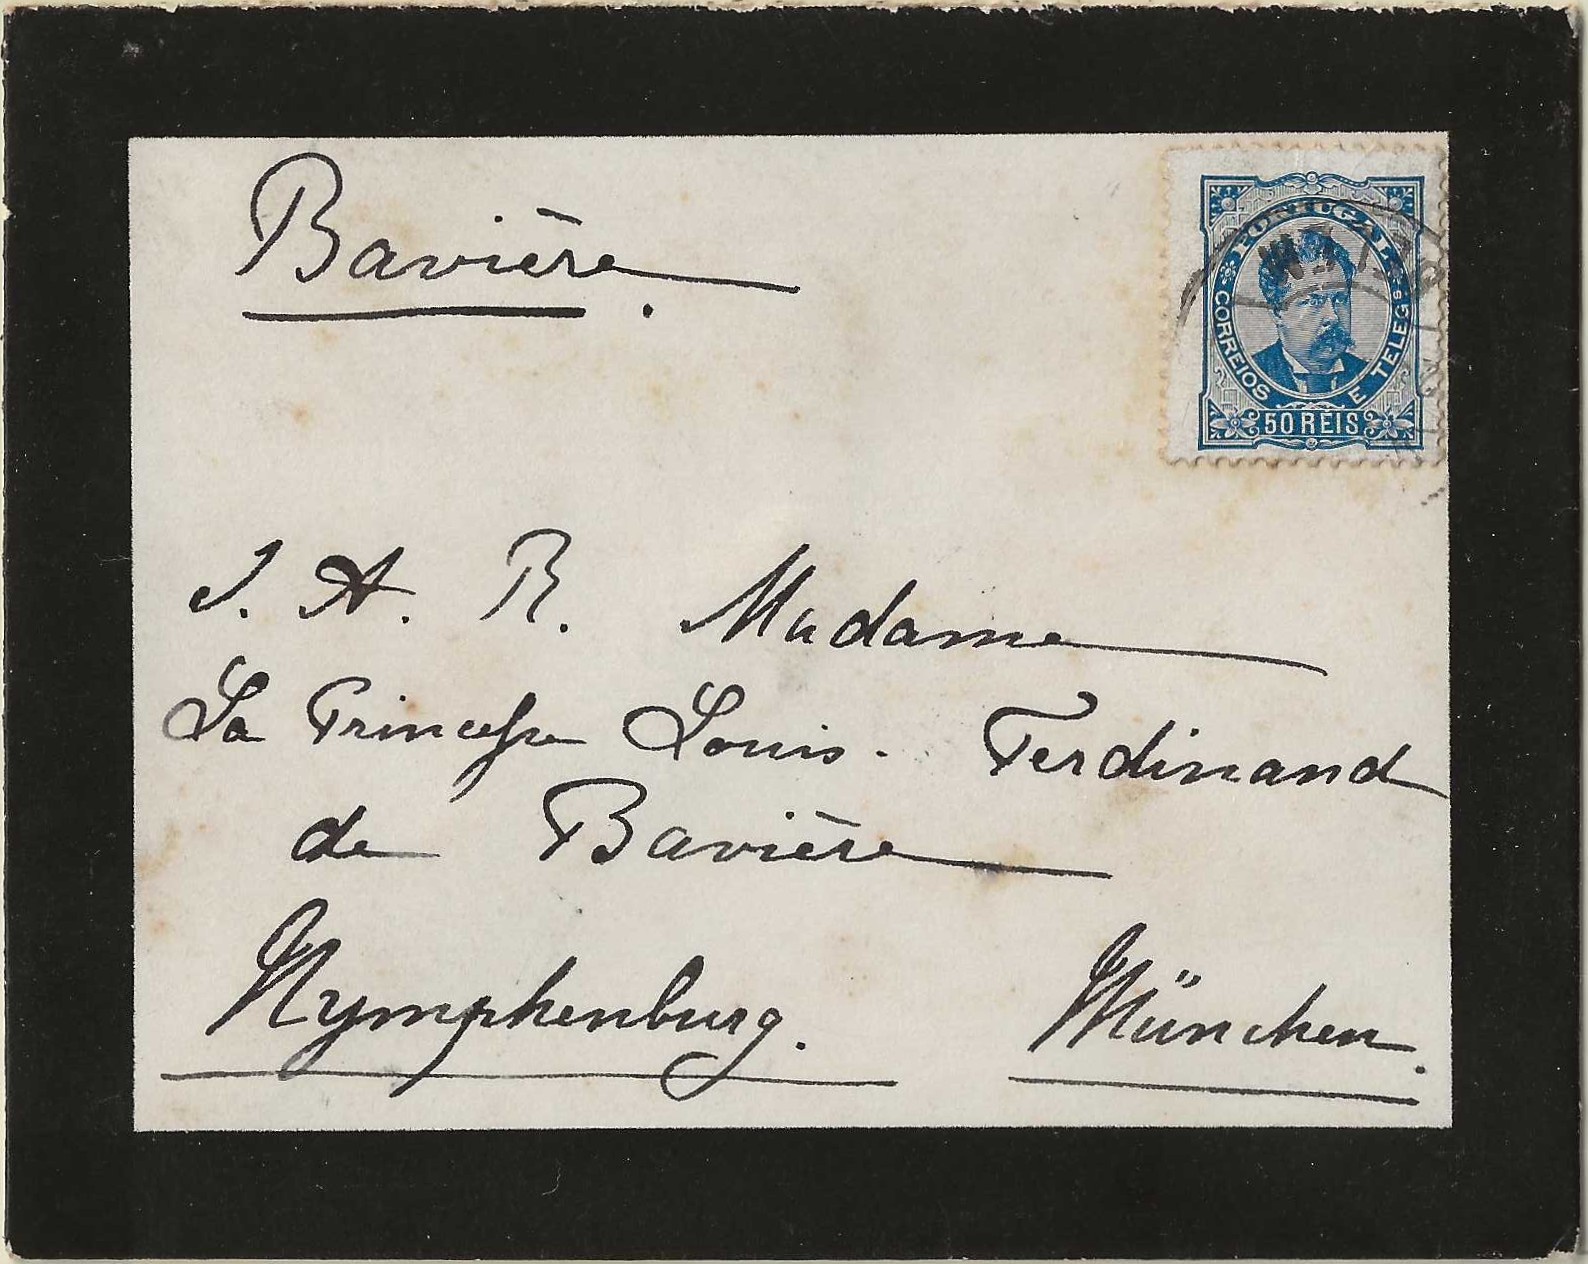 Bavière.
PORTUGAL
CORREIOS E TELEGS
50 RÉIS
BELEM
S. A. R. Madame
La Princesse Louis-Ferdinand
de Bavière
Nymphenburg. München.